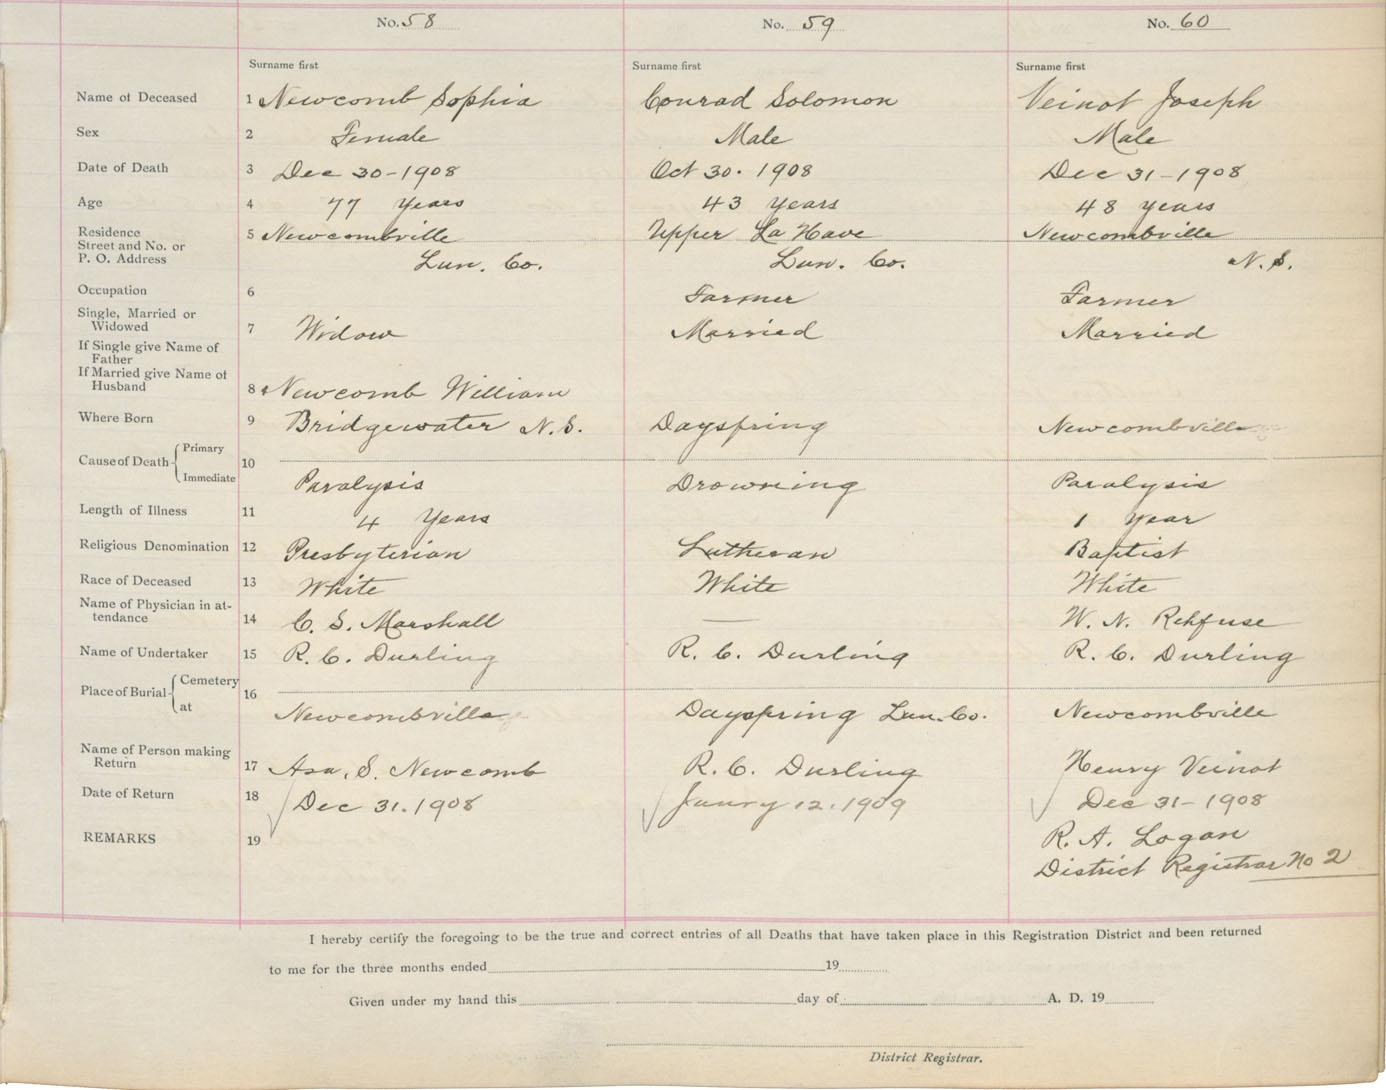 No. 58 No. 59 No. 60
Surname first Surname first Surname first
Name of Deceased 1 Newcomb Sophia Conrad Solomon Veinot Joseph
Sex 2 Female Male Male
Date of Death 3 Dec 30-1908 Oct 30. 1908 Dec 31-1908
Age 4 77 Years 43 Years 48 years
Residence 5 Newcombville Upper La Have Newcombville
Street and No. or
P. O. Address Lun. Co. Lun. Co. N. S.
Occupation 6 Farmer Farmer
Single, Married or
Widowed 7 Widow Married Married
If Single give Name of
Father
If Married give Name of
Husband 8 Newcomb William
Where Born 9 Bridgewater N. S. Dayspring Newcombville
Cause of Death Primary 10
Immediate Paralysis Drowning Paralysis
Length of Illness 11 4 Years 1 Year
Religious Denomination 12 Presbyterian Lutheran Baptist
Race of Deceased 13 White White White
Name of Physician in at-
tendance 14 C. S. Marshall — W. N. Rehfuse
Name of Undertaker 15 R. C. Durling R. C. Durling R. C. Durling
Place of Burial Cemetery 16
at Newcombville Dayspring Lun. Co. Newcombville
Name of Person making
Return 17 Asa. S. Newcomb R. C. Durling Henry Veinot
Date of Return 18 Dec 31. 1908 Janry 12. 1909 Dec 31-1908
REMARKS 19 R. A. Logan
District Registrar No 2
I hereby certify the foregoing to be the true and correct entries of all Deaths that have taken place in this Registration District and been returned
to me for the three months ended 19
Given under my hand this day of A. D. 19
District Registrar.